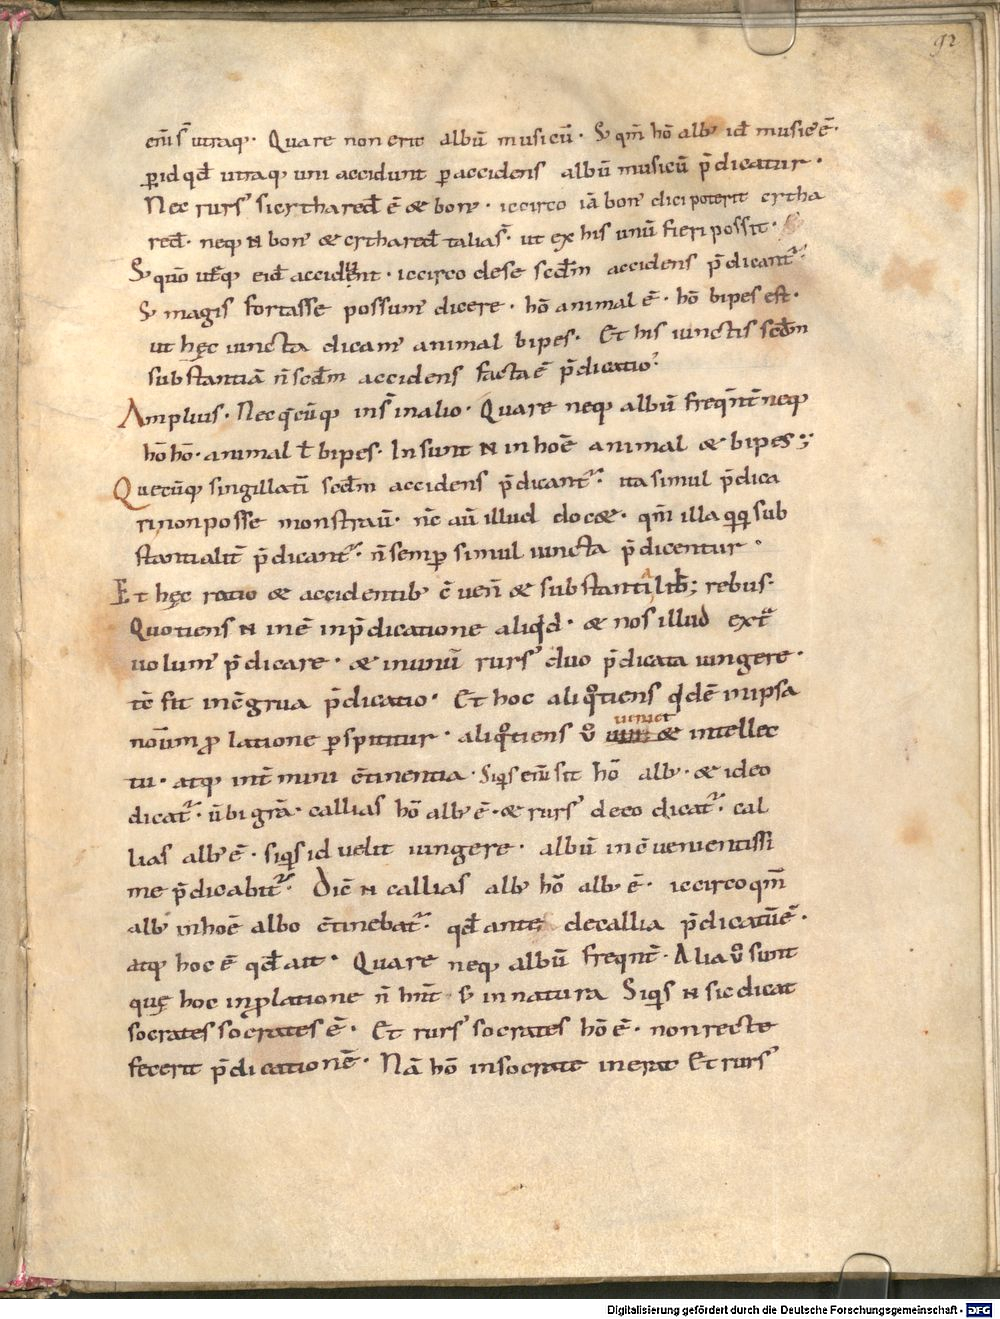 92
eni s̄ utraq;. Quare non erit albū musicū. S; qm̄ hō alb; id music; ē.
ꝑ id qd̄ utraq; uni accidunt ꝑ accidens albū musicū p̄dicatur.
Nec rurs' si cithared̄ ē & bon;. iccirco iā bon; dici poterit citha
red̄. neq; n̄ bon; & cithared̄ talia s̄. ut ex his unū fieri possit.
S; quō utq; eid̄ accident. iccirco de se scd̄m accidens p̄dicant᷑.
S; magis fortasse possum; dicere. hō animal ē. hō bipes est.
ut hęc iuncta dicam; animal bipes. Et his iunctis scd̄m
substantiā n̄ scd̄m accidens facta ē p̄dicatio.
Amplius. Nec q̄cūq; ins̄ in alio. Quare neq; albū freq̄nt̄ neq;
hō hō. animal ł bipes. Insunt n̄ in hoīe animal & bipes;
Quecūq; singillatī scd̄m accidens p̄dicant᷑. ita simul p̄dica
ri non posse monstrau̅. nc̄ au̅ illud docet. qm̄ illa q̄q; sub
stantialit̄ p̄dicant᷑. n̄ semꝑ simul iuncta p̄dicentur.
Et hęc ratio & accidentib; ē uen̄ & substantialib; rebus.
Quotiens n̄ in ē in p̄dicatione aliqd. & nos illud extͣ
uolum; p̄dicare. & in unū rurs' duo p̄dicata iungere.
tc̄ fit incōgrua p̄dicatio. Et hoc aliqͦtiens qdē in ipsa
noīum ꝓlatione ꝑspicitur. aliqͦtiens ů & intellec
tu. atq; int̄ mini c̄tinentia. Siqis eni sit hō alb;. & ideo
dicat᷑. ůbi grā. callias hō alb; ē. & rurs' de eo dicat᷑. cal
lias alb; ē. siqis id uelit iungere. albū incōuenientissi
me p̄dicabit᷑. Dic̄ n̄ callias alb; hō alb; ē. iccirco qm̄
alb; in hoīe albo c̄tinebat᷑. qd̄ ante de callia p̄dicatū ē.
atq; hoc ē qd̄ ait. Quare neq; albū freqnt̄. Alia ů sunt
quę hoc in ꝓlatione n̄ hn̄t s; in natura Siqis n̄ sic dicat
socrates socrates ē. Et rurs' socrates hō ē. non recte
fecerit p̄dicationē. Nā hō in socrate inerat Et rurs'
Digitalisierung gefördert durch die Deutsche Forschungsgemeinschaft - DFG